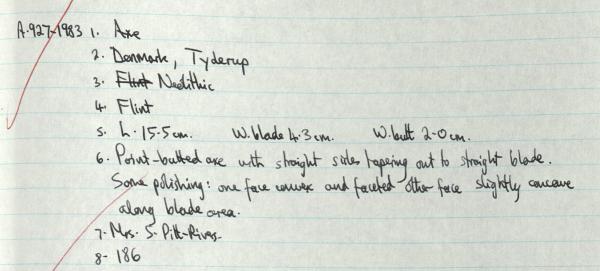 A.927-1983 1. Axe
2. Denmark, Tyderup
3. Flint Neolithic
4. Flint
5. L. 15.5cm. W. blade 4.3cm. W. butt 2.0cm.
6. Point-butted axe with straight sides tapering out to straight blade.
Some polishing: one face convex and faceted other face slightly concave
along blade area.
7. Mrs. S. Pitt-Rivers
8. 186